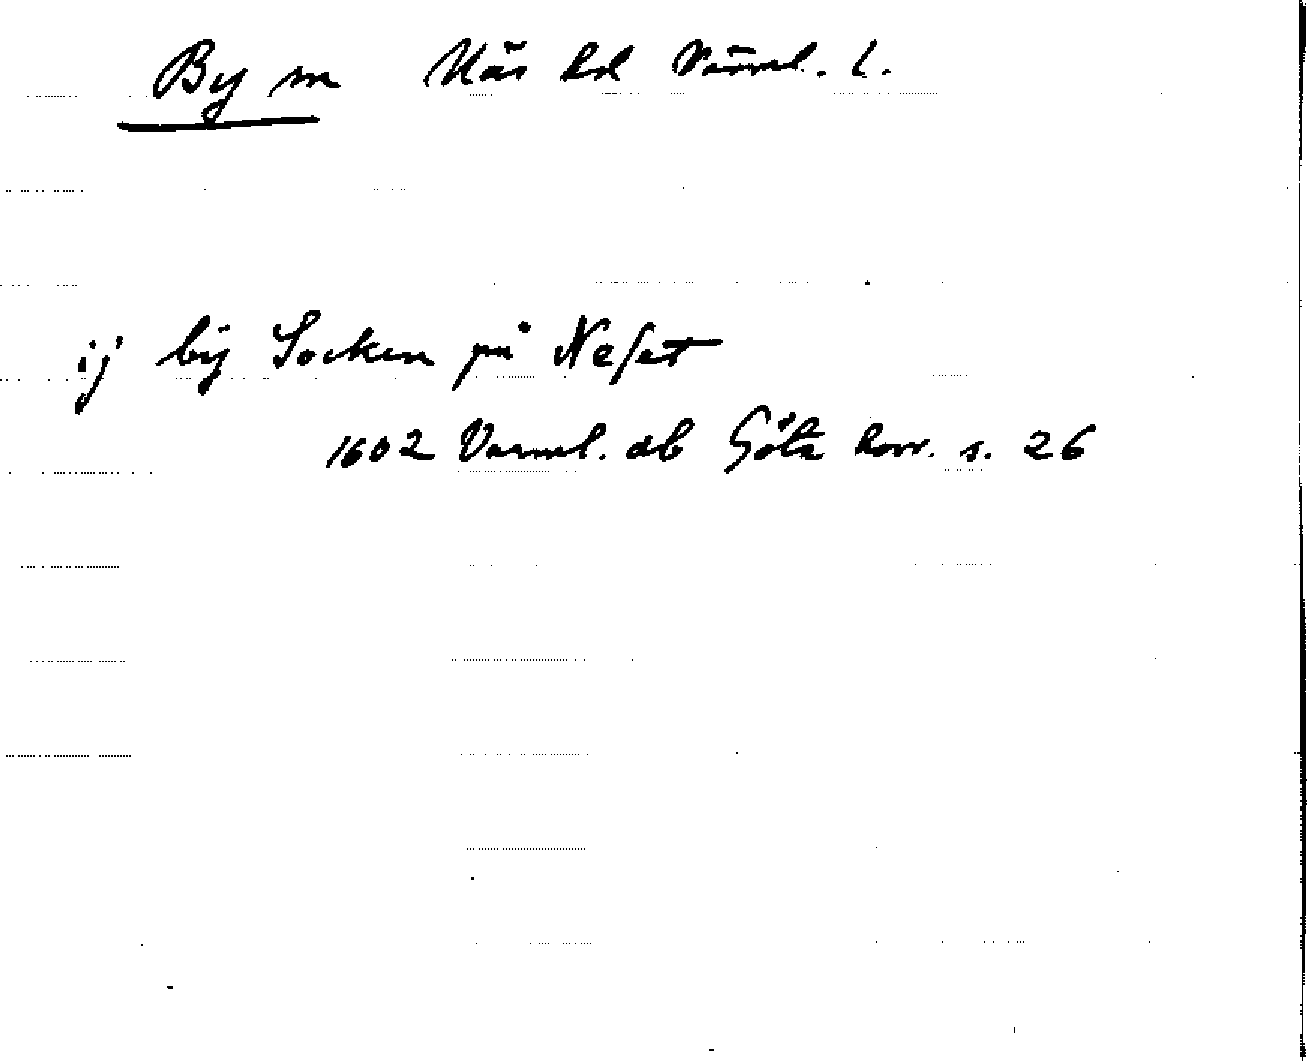 By sn Näs hd Värml. l.
ij bÿ Socken på Neset
1602 Värml. ab Göta hovr. s. 26